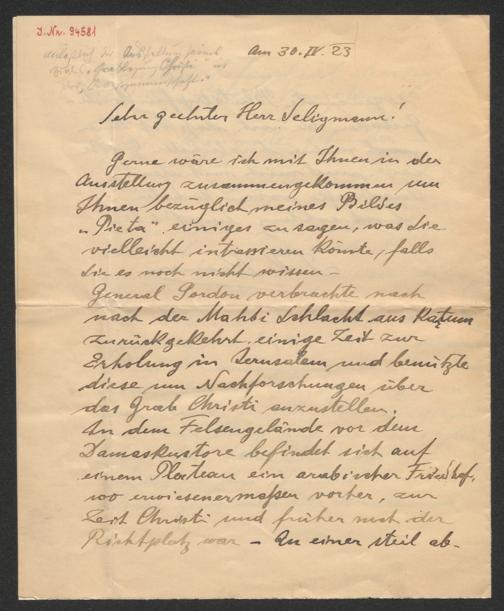 J. Nr. 94581
am 30. IV. 23
anlässlich der Ausstellung seines
Bildes „Grablegung Christi" 
Sehr geehrter Herr Seligmann!
Gerne wäre ich mit Ihnen in der
Ausstellung zusammengekommen um
Ihnen bezüglich meines Bildes
„Pieta" einiges zu sagen, was Sie
vielleicht intressieren könnte, falls
Sie es noch nicht wissen –
General Gordon verbrachte nach
nach der Mahdi Schlacht aus Katum
zurückgekehrt, einige Zeit zur
Erholung in Jerusalem und benützte
diese um Nachforschungen über
das Grab Christi anzustellen.
In dem Felsengelände vor dem
Damaskustore befindet sich auf
einem Plateau ein arabischer Friedhof,
wo erwiesenermaßen vorher, zur
Zeit Christi und früher noch der
Richtplatz war – An einer steil ab-